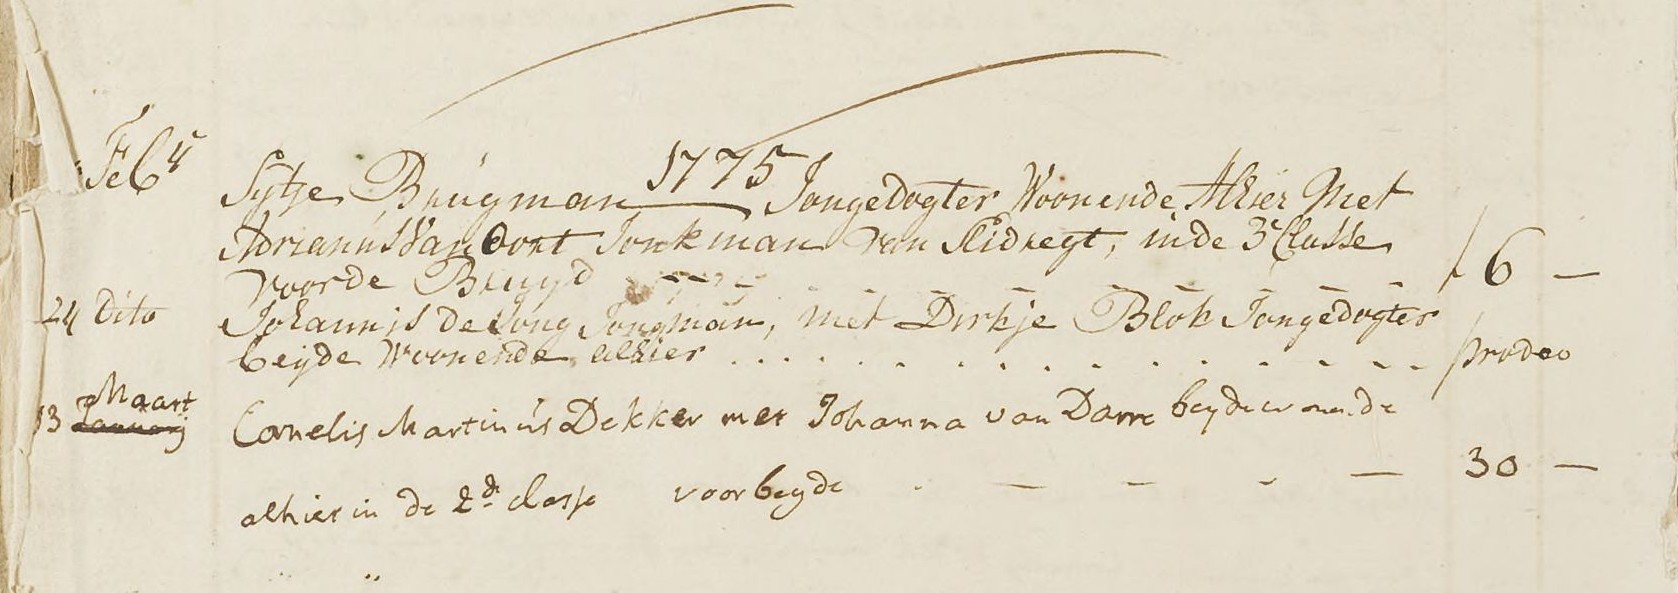 1775
Feb:y Sytje Brugman Jongedogter Woonende Alhier Met
Adrianus Van Oort Jonkman van Slidregt, in de 3e Classe
voorde Bruyd 6 —
24 Dito Johannis de Jong Jongman, met Dirkje Blok Jongedogter
beyde Woonende alhier . . . . . . . . . . . . . prodeo
Maart
13 Januarij Cornelis Martinus Dekker met Johanna van Darre beyde wonende
alhier in de 2de classe voor beyde . — - - — 30 —